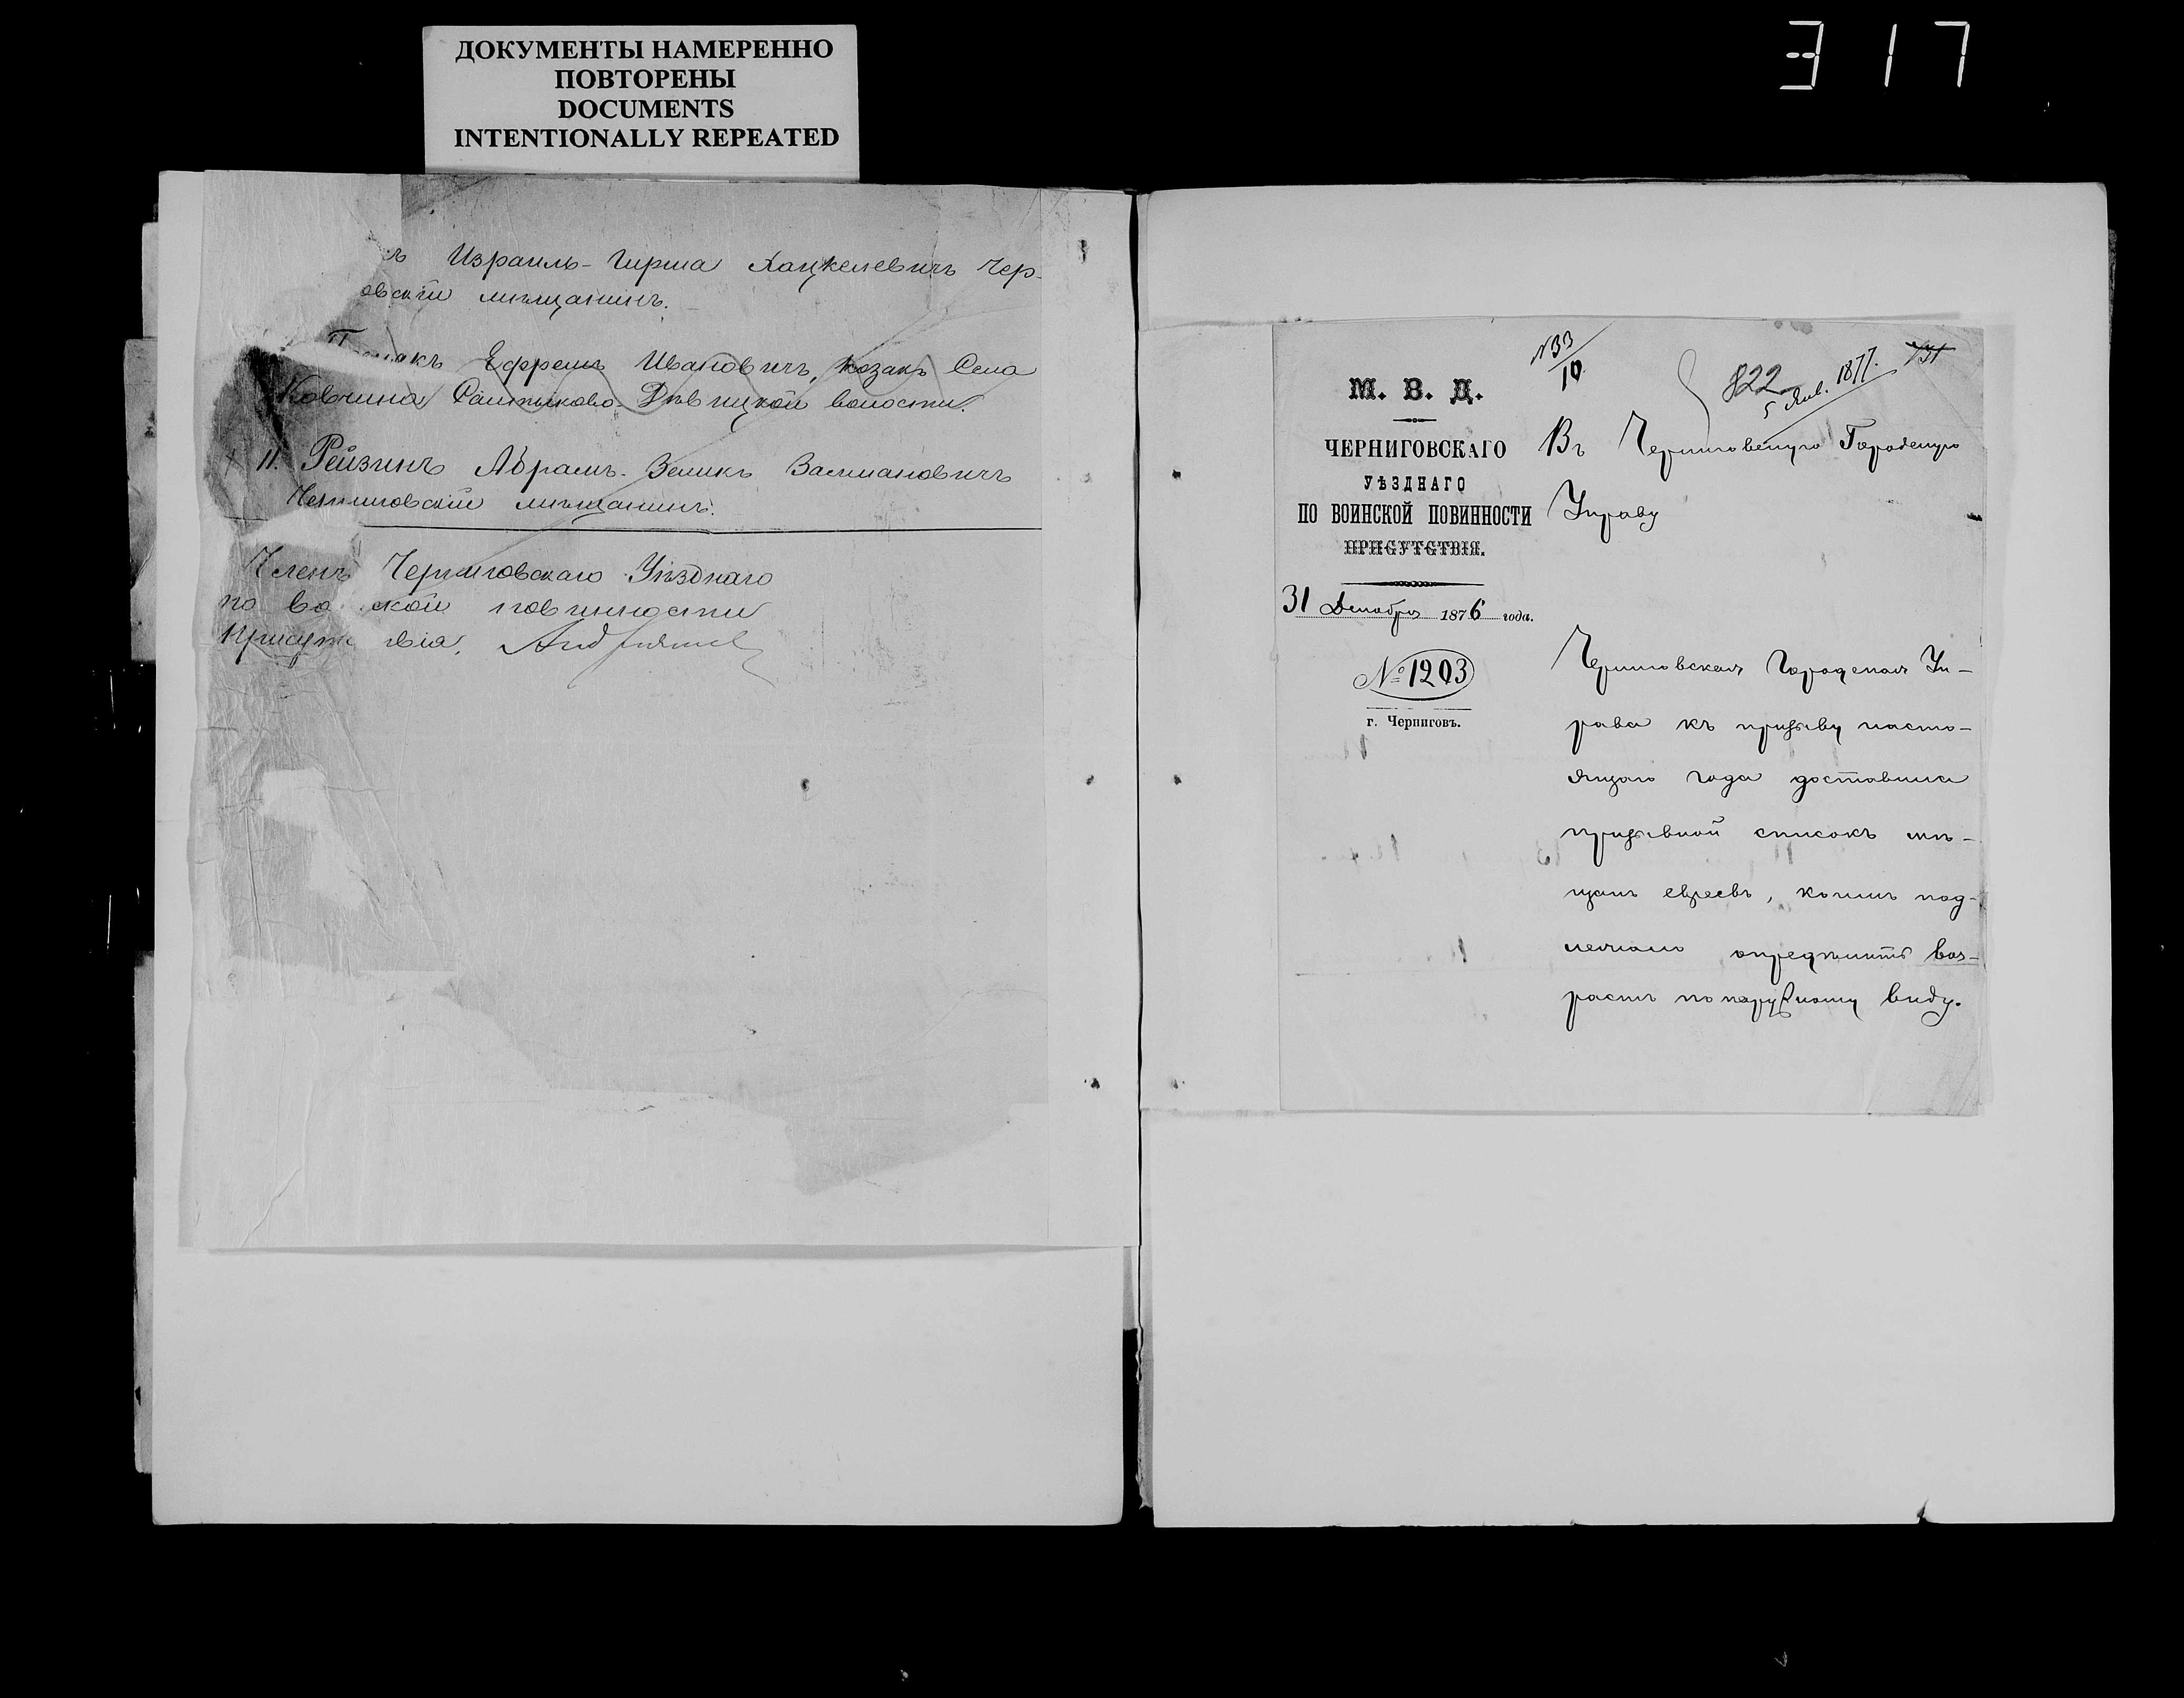 ДОКУМЕНТЫ НАМЕРЕННО
ПОВТОРЕНЫ
DOCUMENTS
INTENTIONALLY REPEATED
317
ъ Израиль-Гирша Хацкелевичъ Чер-
овскій мѣщанинъ.
Ефремъ Ивановичъ, козакъ Села
Ковчина Салтыково-Дѣвицкой волости.
11. Рейзинъ Абрамъ-Зеликъ Залмановичъ
Черниговскій мѣщанинъ.
Членъ Черниговскаго Уѣзднаго
по во ской повинности
Присут твія.
№33/10
822
5 Янв. 1877.
М. В. Д.
ЧЕРНИГОВСКАГО
УѢЗДНАГО
ПО ВОИНСКОЙ ПОВИННОСТИ
ПРИСУТСТВІЯ.
31 Декабря 1876 года.
№ 1203
г. Черниговъ.
Въ Черниговскую Городскую
Управу
Черниговская Городская Уп-
рава къ призыву насто-
ящаго года доставила
призывной списокъ мѣ-
щанъ евреевъ, коимъ под-
лежало опредѣлить воз-
растъ по наружному виду.